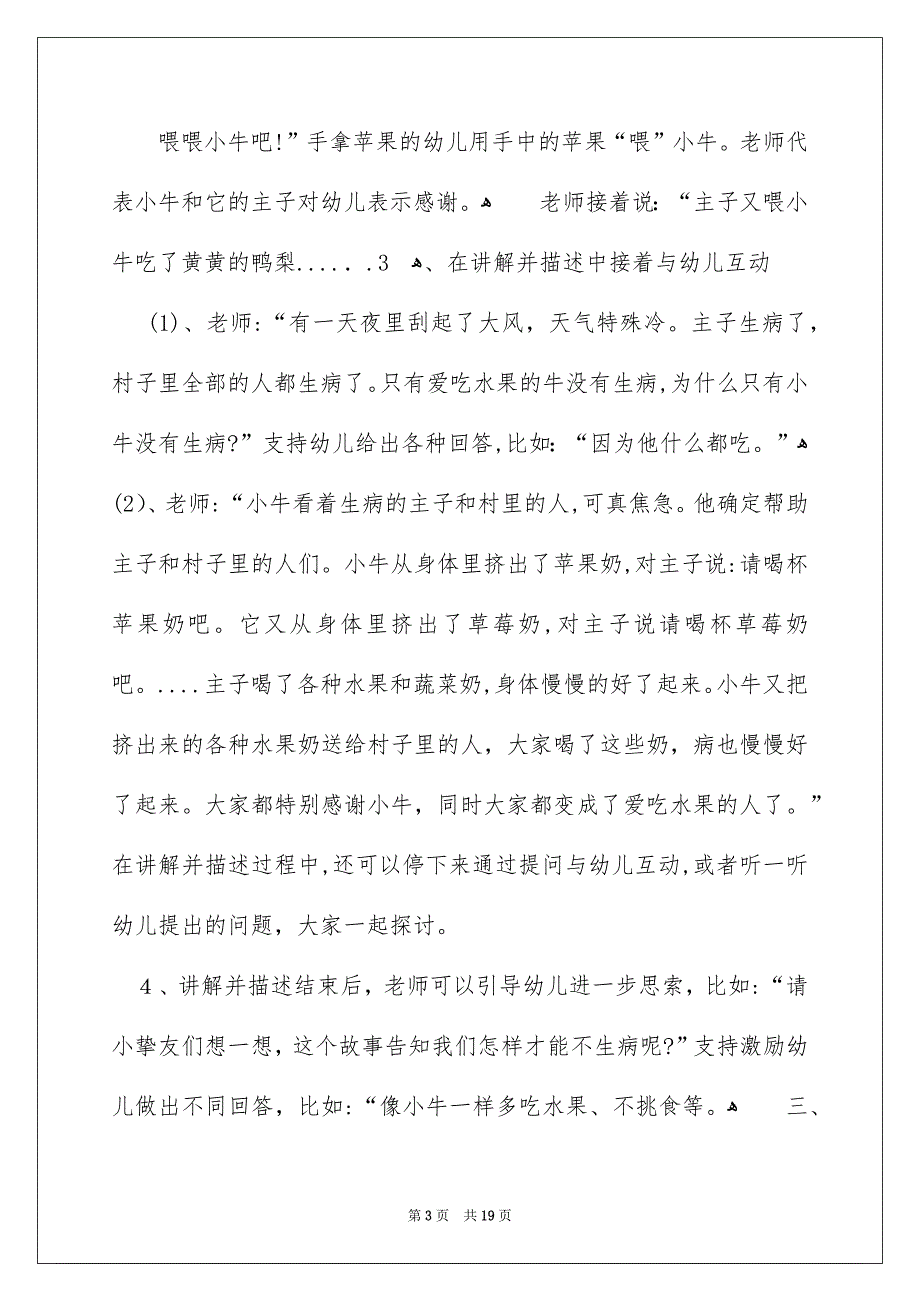 喂喂小牛吧!”手拿苹果的幼儿用手中的苹果“喂”小牛。老师代
表小牛和它的主子对幼儿表示感谢。ﻫ 老师接着说：“主子又喂小
牛吃了黄黄的鸭梨.......3 ﻫ、在讲解并描述中接着与幼儿互动
(1)、老师:“有一天夜里刮起了大风，天气特殊冷。主子生病了，
村子里全部的人都生病了。只有爱吃水果的牛没有生病,为什么只有小
牛没有生病?”支持幼儿给出各种回答,比如：“因为他什么都吃。”ﻫ
(2)、老师:“小牛看着生病的主子和村里的人,可真焦急。他确定帮助
主子和村子里的人们。小牛从身体里挤出了苹果奶,对主子说:请喝杯
苹果奶吧。它又从身体里挤出了草莓奶,对主子说请喝杯草莓奶
吧。....主子喝了各种水果和蔬菜奶,身体慢慢的好了起来。小牛又把
挤出来的各种水果奶送给村子里的人，大家喝了这些奶，病也慢慢好
了起来。大家都特别感谢小牛，同时大家都变成了爱吃水果的人了。”
在讲解并描述过程中,还可以停下来通过提问与幼儿互动,或者听一听
幼儿提出的问题，大家一起探讨。
4、讲解并描述结束后，老师可以引导幼儿进一步思索，比如:“请
小挚友们想一想，这个故事告知我们怎样才能不生病呢?”支持激励幼
儿做出不同回答，比如:“像小牛一样多吃水果、不挑食等。ﻫ 三、
第 3 页 共 19 页